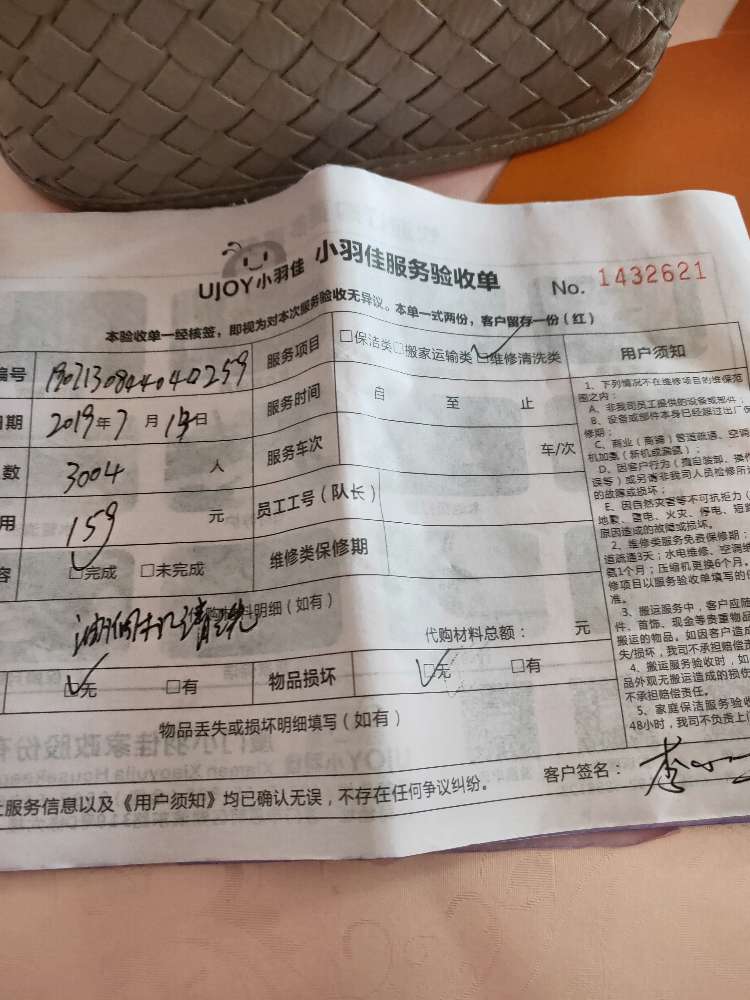 UJOY小羽佳 小羽佳服务验收单 No. 1432621
本验收单一经核签，即视为对本次服务验收无异议。本单一式两份，客户留存一份（红）
编号 服务项目 □保洁类□搬家运输类□维修清洗类 用户须知
日期 2019年7月 日 服务时间 自 至 止
数 3004 人 服务车次 车/次
用 159 元 员工工号（队长）
容 □完成 □未完成 维修类保修期
油烟机清洗
料明细（如有） 代购材料总额： 元
□无 □有 物品损坏 □无 □有
物品丢失或损坏明细填写（如有）
服务信息以及《用户须知》均已确认无误，不存在任何争议纠纷。 客户签名： 李
1、下列情况不在维修项目的维保范
围之内：
A、非我司员工提供的设备或部件；
B、设备或部件本身已经超过出厂保
修期；
C、商业（商铺）管道疏通、空调
机加氨（新机或漏氨）；
D、因客户行为（擅自装卸、操作
误等）或另请非我司人员检修所
的故障或损坏；
E、因自然灾害等不可抗拒力（
地震、雷电、火灾、停电、短路
原因造成的故障或损坏。
2、维修类服务免费保修期：
道疏通3天；水电维修、空调维
氨1个月；压缩机更换6个月。
修项目以服务验收单填写的保
准。
3、搬运服务中，客户应随
件、首饰、现金等贵重物品
搬运的物品。如因客户造成
失/损坏，我司不承担赔偿责
4、搬运服务验收时，如
品外观无搬运造成的损伤
不承担赔偿责任。
5、家庭保洁服务验收
48小时，我司不负责上门